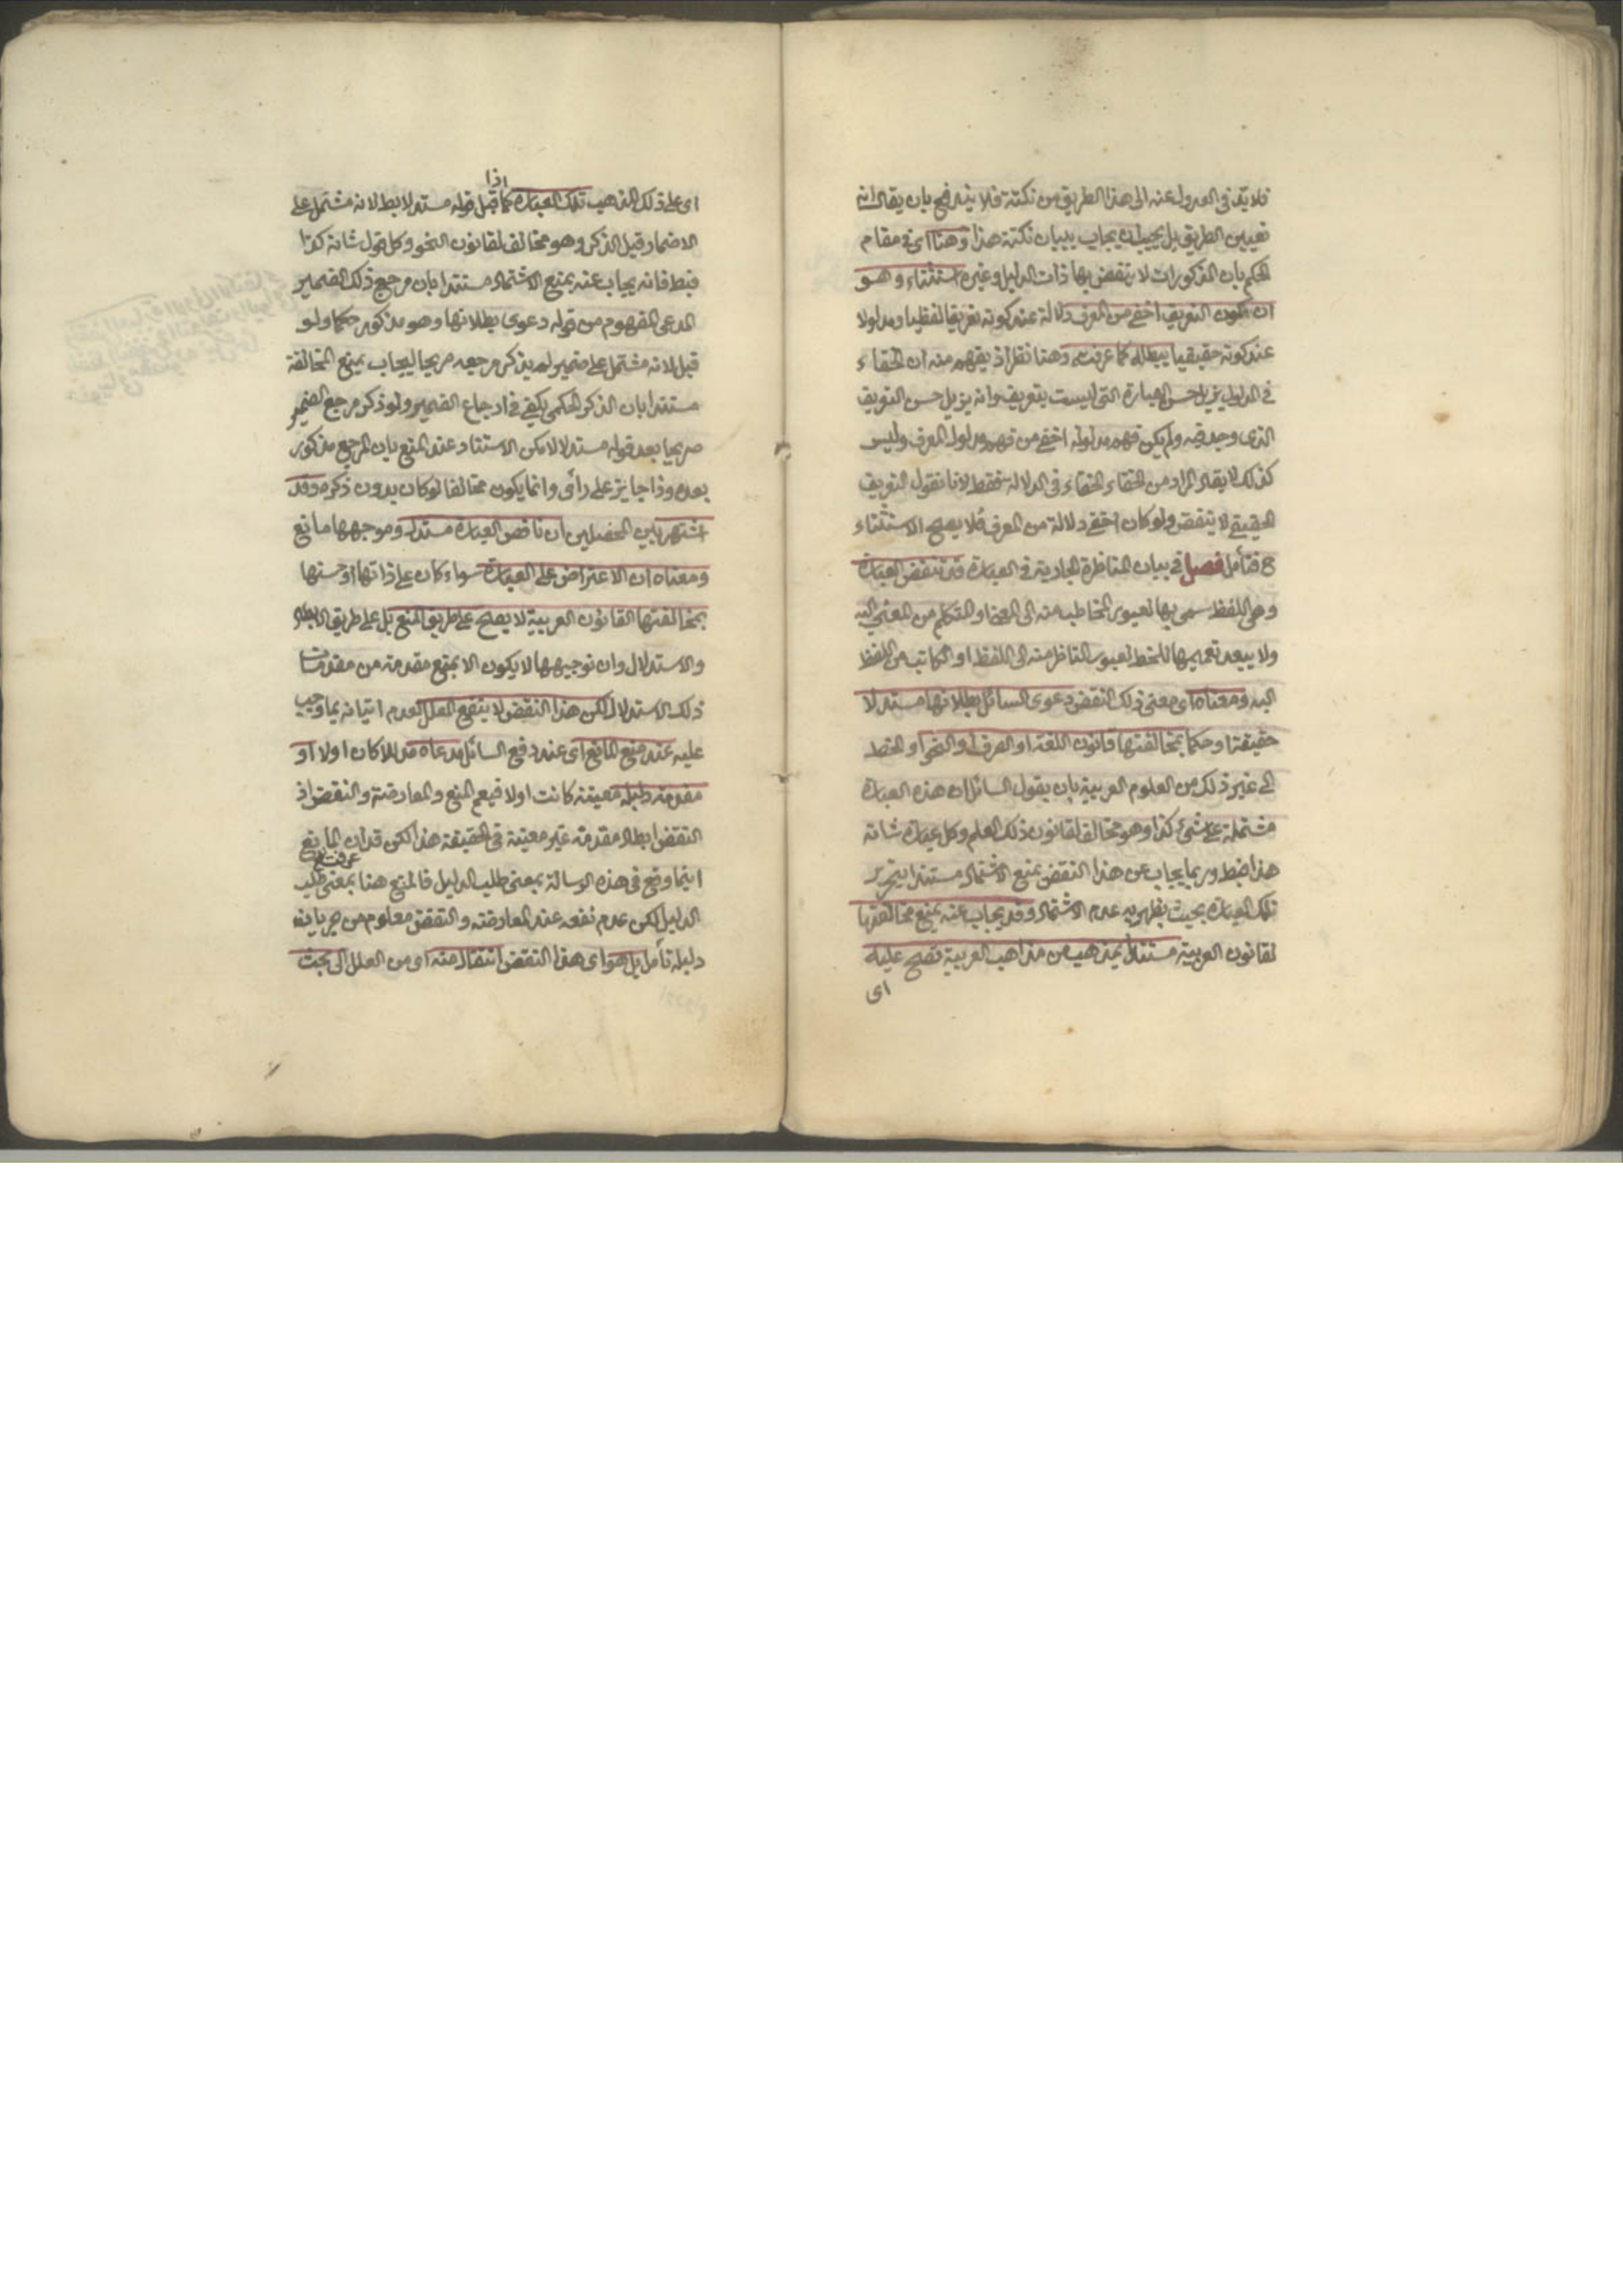 فلا بد في العدول عنه الى هذا الطريق من نكتة فلا يندفع بان يقال انه
تعيين الطريق بل يجب ان يجاب ببيان نكتة هذا وهنا اى في مقام
الحكم بان المذكورات لا ينقض بها ذات الدليل وغيره استثناء وهو
ان يكون التعريف اخفى من المعرف دلالة عند كونه تعريفا لفظيا ومدلولا
عند كونه حقيقيا يبطله كما عرفت وهنا نظر اذ يفهم منه ان الخفاء
في المدلول يزيل حسن العبارة التى ليست بتعريف وانه يزيل حسن التعريف
الذى وجد فيه ولم يكن فهم مدلوله اخفى من فهم مدلول المعرف وليس
كذلك لا يقال المراد من الخفاء الخفاء في الدلالة فقط لانا نقول التعريف
الحقيقى لا ينقض ولو كان اخفى دلالة من المعرف فلا يصح الاستثناء
فتأمل فصل في بيان المناظرة الجارية في العبارة قد تنقض العبارة
وهى اللفظ سمى بها لعبور المخاطب منه الى المعنى او المتكلم من المعنى اليه
ولا يبعد تعميمها للخط لعبور الناظر منه الى اللفظ او الكاتب من اللفظ
اليه ومعناه اى معنى ذلك النقض دعوى السائل بطلانها مستدلا
حقيقة او حكما بمخالفتها قانون اللغة او الصرف او النحو او الخط
الى غير ذلك من العلوم العربية بان يقول السائل ان هذه العبارة
مشتملة على شئ كذا وهو مخالف لقانون ذلك العلم وكل عبارة شانه
هذا فبط وربما يجاب عن هذا النقض بمنع الاشتمال مستندا بتحرير
تلك العبارة بحيث يظهر به عدم الاشتمال وقد يجاب عنه بمنع مخالفتها
لقانون العربية مستندا بمذهب من مذاهب العربية تصح عليه
اى
اى على ذلك المذهب تلك العبارة كما اذا قيل قوله مستدلا بط لانه مشتمل على
الاضمار قبل الذكر وهو مخالف لقانون النحو وكل قول شانه كذا
فبط فانه يجاب عنه بمنع الاشتمال مستندا بان مرجع ذلك الضمير
المدعى المفهوم من قوله دعوى بطلانها وهو مذكور حكما ولو
قيل لانه مشتمل على ضمير لم يذكر مرجعه صريحا ليجاب بمنع المخالفة
مستندا بان الذكر الحكمى يكفى في ارجاع الضمير ولو ذكر مرجع الضمير
صريحا بعد قوله مستدلا لامكن الاستناد عند المنع بان المرجع مذكور
بعده وذا جايز على رأى وانما يكون مخالفا لو كان بدون ذكره وقد
اشتهر بين المحصلين ان ناقض العبارة مستدل وموجهها مانع
ومعناه ان الاعتراض على العبارة سواء كان على ذاتها او حسنها
بمخالفتها القانون العربية لا يصلح على طريق المنع بل على طريق الابطال
والاستدلال وان توجيهها لا يكون الا بمنع مقدمة من مقدمات
ذلك الاستدلال لكن هذا النقض لا ينفع المعلل لعدم اتيانه بما وجب
عليه عند منع المانع اى عند دفع السائل مدعاه مدللا كان اولا او
مقدمة دليله معينة كانت اولا فيعم المنع والمعارضة والنقض اذ
النقض ابطال مقدمة غير معينة في الحقيقة هذا لكن قد عرفت ان المانع
اينما وقع في هذه الرسالة بمعنى طلب الدليل فالمنع هنا بمعنى طلب
الدليل لكن عدم نفعه عند المعارضة والنقض معلوم من جريان
دليله تأمل بل هو اى هذا النقض انتقال منه اى من المعلل الى بحث